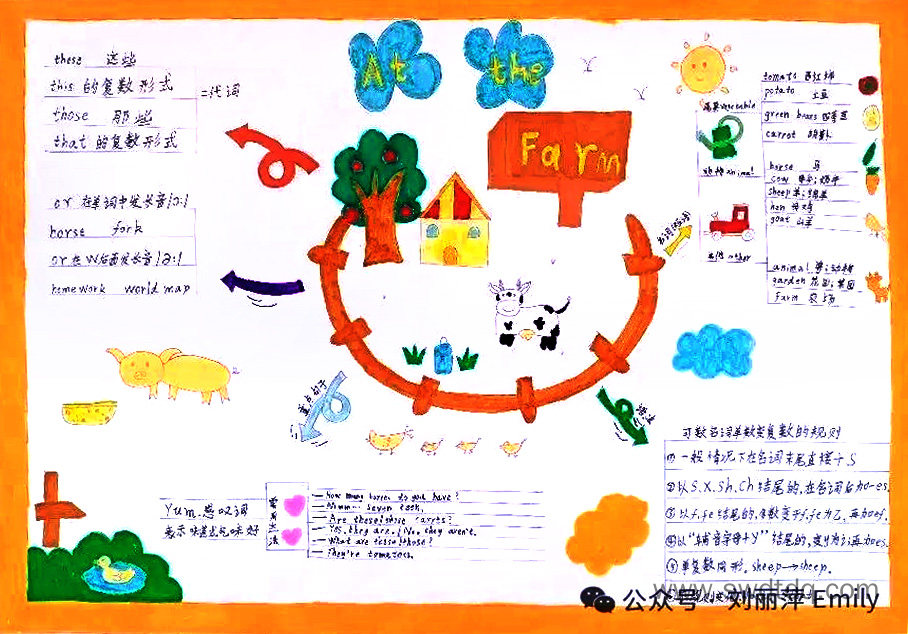 At the
Farm
these 这些
this 的复数形式
those 那些
that 的复数形式
=代词
or 在单词中发长音/ɔ:/
horse fork
or 在W后面发长音/ɜ:/
homework world map
tomato 西红柿
potato 土豆
green beans
carrot 胡萝卜
蔬菜 vegetable
horse 马
cow
sheep
hen 母鸡
goat 山羊
动物 animal
其他 other
animal 兽;动物
garden 花园;菜园
farm 农场
重点句子
语法
Yum. 感叹词
表示味道或气味好
How many horses do you have?
Hmm... Seven
Are these/those carrots?
Yes, they are. / No, they aren't.
What are these/those?
They're tomatoes.
可数名词单数变复数的规则
①一般情况下在名词末尾直接+s
②以s.x.sh.ch结尾的,在名词后加-es.
③以f.fe结尾的,
④以“辅音字母+y”结尾的,变y为i再加es.
单复数同形. sheep→sheep.
www.swdtdq.com
公众号 · 刘丽萍 Emily